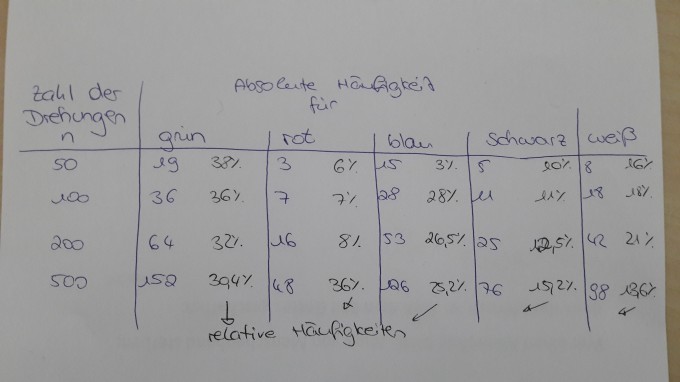 Absolute Häufigkeit
für
Zahl der
Drehungen
n
grün rot blau schwarz weiß
50 19 38% 3 6% 15 3% 5 10% 8 16%
100 36 36% 7 7% 28 28% 11 11% 18 18%
200 64 32% 16 8% 53 26,5% 25 12,5% 42 21%
500 152 30,4% 48 36% 126 25,2% 76 15,2% 98 13,6%
relative Häufigkeiten